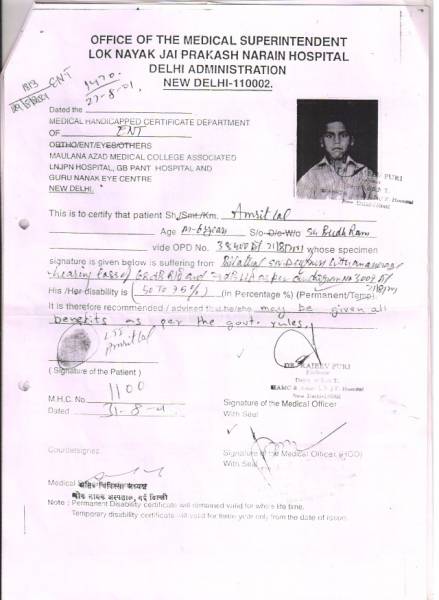 OFFICE OF THE MEDICAL SUPERINTENDENT
LOK NAYAK JAI PRAKASH NARAIN HOSPITAL
DELHI ADMINISTRATION
NEW DELHI-110002.
ENT
27-8-01
Dated the
MEDICAL HANDICAPPED CERTIFICATE DEPARTMENT
OF ENT
ORTHO/ENT/EYES/OTHERS
MAULANA AZAD MEDICAL COLLEGE ASSOCIATED
LNJPN HOSPITAL, GB PANT HOSPITAL AND
GURU NANAK EYE CENTRE
NEW DELHI.
This is to certify that patient Sh/Smt./Km. Amrit lal
Age S/o-D/o-W/o Sh Budh Ram
vide OPD No. whose specimen
signature is given below is suffering from Bilateral
hearing loss of
His /Her disability is (50 TO 75%) (in Percentage %) (Permanent/Temp)
It is therefore recommended / advised that he/she may be given all
benefits as per the govt. rules.
Amrit lal
(Signature of the Patient)
DR. RAJEEV PURI
M.H.C. No. 1100
Dated 31-8-01
Signature of the Medical Officer
With Seal
Countersigned
Signature of the Medical Officer (HOD)
With Seal
Medical
चिकित्सा अध्यक्ष
लोक नायक अस्पताल, नई दिल्ली
Note : Permanent Disability certificate will remained valid for whole life time.
Temporary disability certificate will valid for three year only from the date of issue.